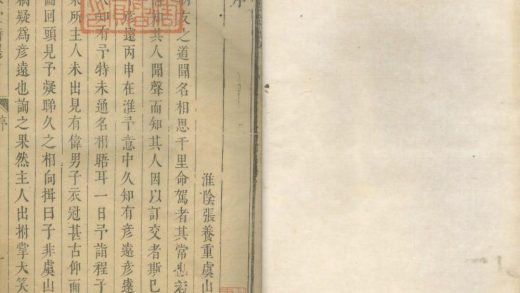 序
淮陰張養重虞山
友之道聞名相思千里命駕者其常也若
相其人聞聲而知其人因以訂交者斯已
彥遠丙申在淮予意中久知有彥遠彥遠
知有予特未通名相語耳一日予詣程子
所主人未出見有偉男子衣冠甚古仰面
回頭見予凝睇久之相向揖曰子非虞山
竊疑為彥遠也詢之果然主人出拊掌大笑
序